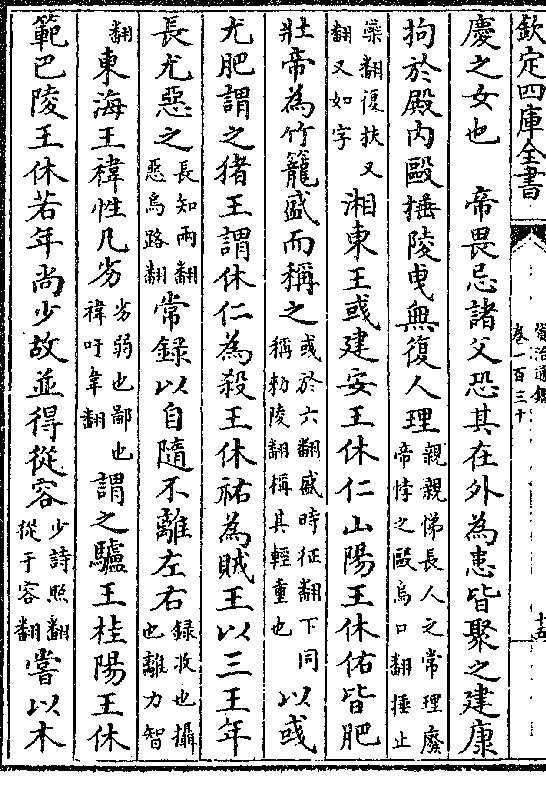 欽定四庫全書
資治通鑑
卷一百三十
十五
慶之女也　帝畏忌諸父恐其在外為患皆聚之建康
拘於殿內毆捶陵曳無復人理親親悌長人之常理廢帝悖之毆烏口翻捶止
橤翻復扶又翻又如字湘東王彧建安王休仁山陽王休佑皆肥
壯帝為竹籠盛而稱之彧於六翻盛時征翻下同稱勑陵翻稱其輕重也以彧
尤肥謂之猪王謂休仁為殺王休祐為賊王以三王年
長尤惡之長知兩翻惡烏路翻常錄以自隨不離左右錄收也攝也離力智
翻東海王禕性凡劣劣弱也鄙也禕吁韋翻謂之驢王桂陽王休
範巴陵王休若年尚少故並得從容少詩照翻從于容翻嘗以木